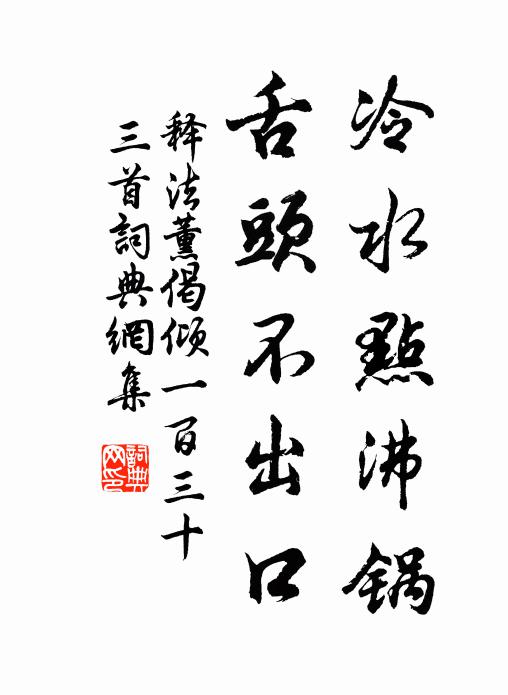 冷水點沸锅
舌頭不出口
释法薰偈倾一百三十
三首詞典網集
詞典网印